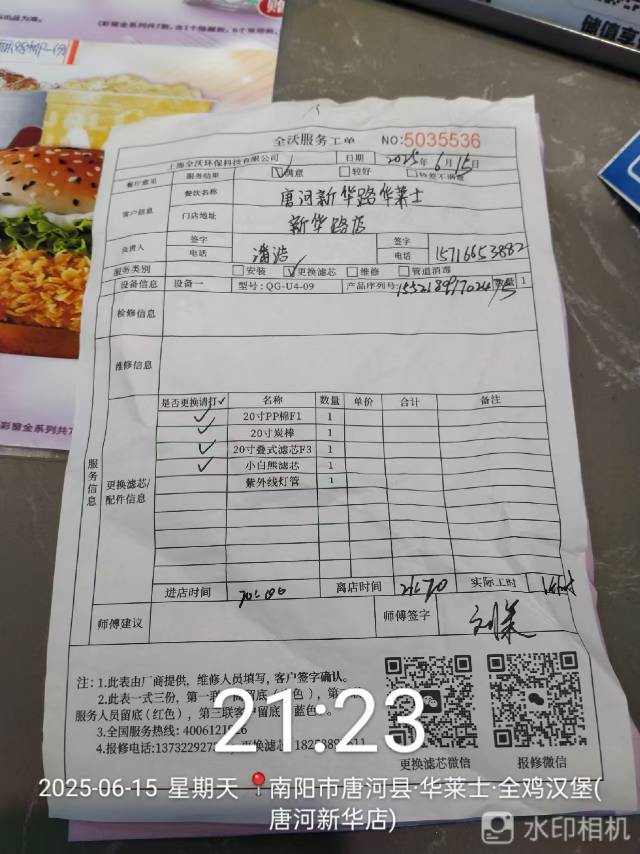 全沃服务工单 NO:5035536
上海全沃环保科技有限公司 日期 2025年6月15日
餐厅意见 服务结果 ☑满意 □较好
客户信息 餐饮名称 唐河新华路华莱士
门店地址 新华路店
负责人 签字 签字
电话 潘浩 电话 15716653882
服务类别 □安装 ☑更换滤芯 □维修 □管道消毒
设备信息 设备一 型号:QG-U4-09 产品序列号: 1
检修信息
维修信息
服务信息
更换滤芯/配件信息
是否更换请打✓ 名称 数量 单价 合计 备注
✓ 20寸PP棉F1 1
✓ 20寸炭棒 1
✓ 20寸叠式滤芯F3 1
✓ 小白熊滤芯 1
紫外线灯管 1
进店时间 离店时间 实际工时
师傅建议 师傅签字
注:1.此表由厂商提供,维修人员填写,客户签字确认。
2.此表一式三份,第一联 留底( 色),第二联
服务人员留底(红色),第三联客户留底(蓝色)。
3.全国服务热线:4006121
4.报修电话:137322927 更换滤芯
更换滤芯微信 报修微信
21:23
2025-06-15 星期天 南阳市唐河县·华莱士·全鸡汉堡(
唐河新华店)
水印相机